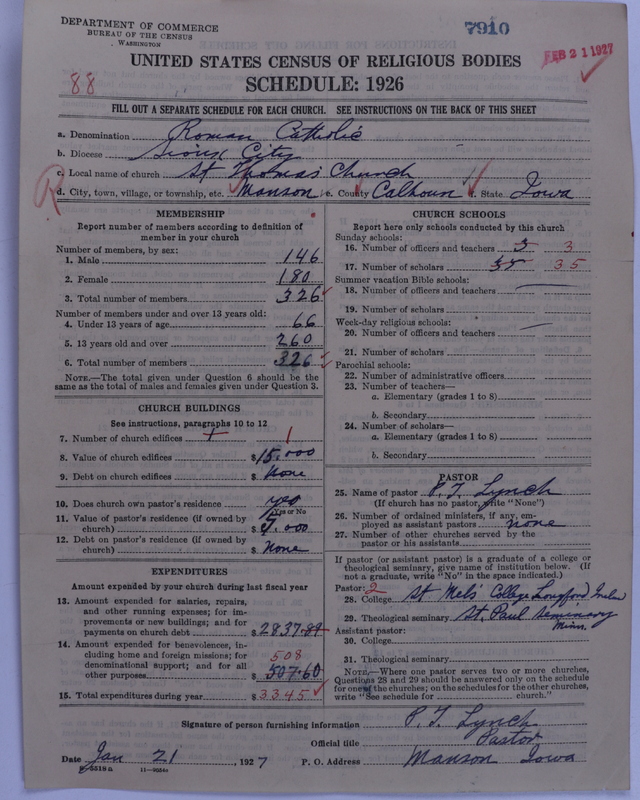 DEPARTMENT OF COMMERCE
BUREAU OF THE CENSUS
WASHINGTON
7910
FEB 21 1927
UNITED STATES CENSUS OF RELIGIOUS BODIES
88
SCHEDULE: 1926
FILL OUT A SEPARATE SCHEDULE FOR EACH CHURCH. SEE INSTRUCTIONS ON THE BACK OF THIS SHEET
a. Denomination Roman Catholic
b. Diocese Sioux City
c. Local name of church St Thomas Church
R
d. City, town, village, or township, etc. Manson e. County Calhoun f. State Iowa
MEMBERSHIP
Report number of members according to definition of
member in your church
Number of members, by sex:
1. Male 146
2. Female 180
3. Total number of members 326
Number of members under and over 13 years old:
4. Under 13 years of age 66
5. 13 years old and over 260
6. Total number of members 326
NOTE.—The total given under Question 6 should be the
same as the total of males and females given under Question 3.
CHURCH BUILDINGS
See instructions, paragraphs 10 to 12
7. Number of church edifices 1
8. Value of church edifices $15.000
9. Debt on church edifices $ None
10. Does church own pastor's residence yes
Yes or No
11. Value of pastor's residence (if owned by
church) $ 9.000
12. Debt on pastor's residence (if owned by
church) $ None
EXPENDITURES
Amount expended by your church during last fiscal year
13. Amount expended for salaries, repairs,
and other running expenses; for im-
provements or new buildings; and for
payments on church debt $2837.89
14. Amount expended for benevolences, in-
cluding home and foreign missions; for
denominational support; and for all
508
other purposes $507.60
15. Total expenditures during year $3345
CHURCH SCHOOLS
Report here only schools conducted by this church
Sunday schools:
16. Number of officers and teachers 3 3
17. Number of scholars 35 35
Summer vacation Bible schools:
18. Number of officers and teachers
19. Number of scholars
Week-day religious schools:
20. Number of officers and teachers
21. Number of scholars
Parochial schools:
22. Number of administrative officers
23. Number of teachers—
a. Elementary (grades 1 to 8)
b. Secondary
24. Number of scholars—
a. Elementary (grades 1 to 8)
b. Secondary
PASTOR
25. Name of pastor P. T. Lynch
(If church has no pastor, write "None")
26. Number of ordained ministers, if any, em-
ployed as assistant pastors none
27. Number of other churches served by the
pastor or his assistants
If pastor (or assistant pastor) is a graduate of a college or
theological seminary, give name of institution below. (If
not a graduate, write "No" in the space indicated.)
Pastor: 2
28. College St Mel's College Longford Irelan
29. Theological seminary St. Paul Seminary
Minn.
Assistant pastor:
30. College
31. Theological seminary
NOTE.—Where one pastor serves two or more churches,
Questions 28 and 29 should be answered only on the schedule
for one of the churches; on the schedules for the other churches,
write "See schedule for church."
Signature of person furnishing information P. T. Lynch
Official title Pastor
Date Jan 21, 1927 P. O. Address Manson Iowa